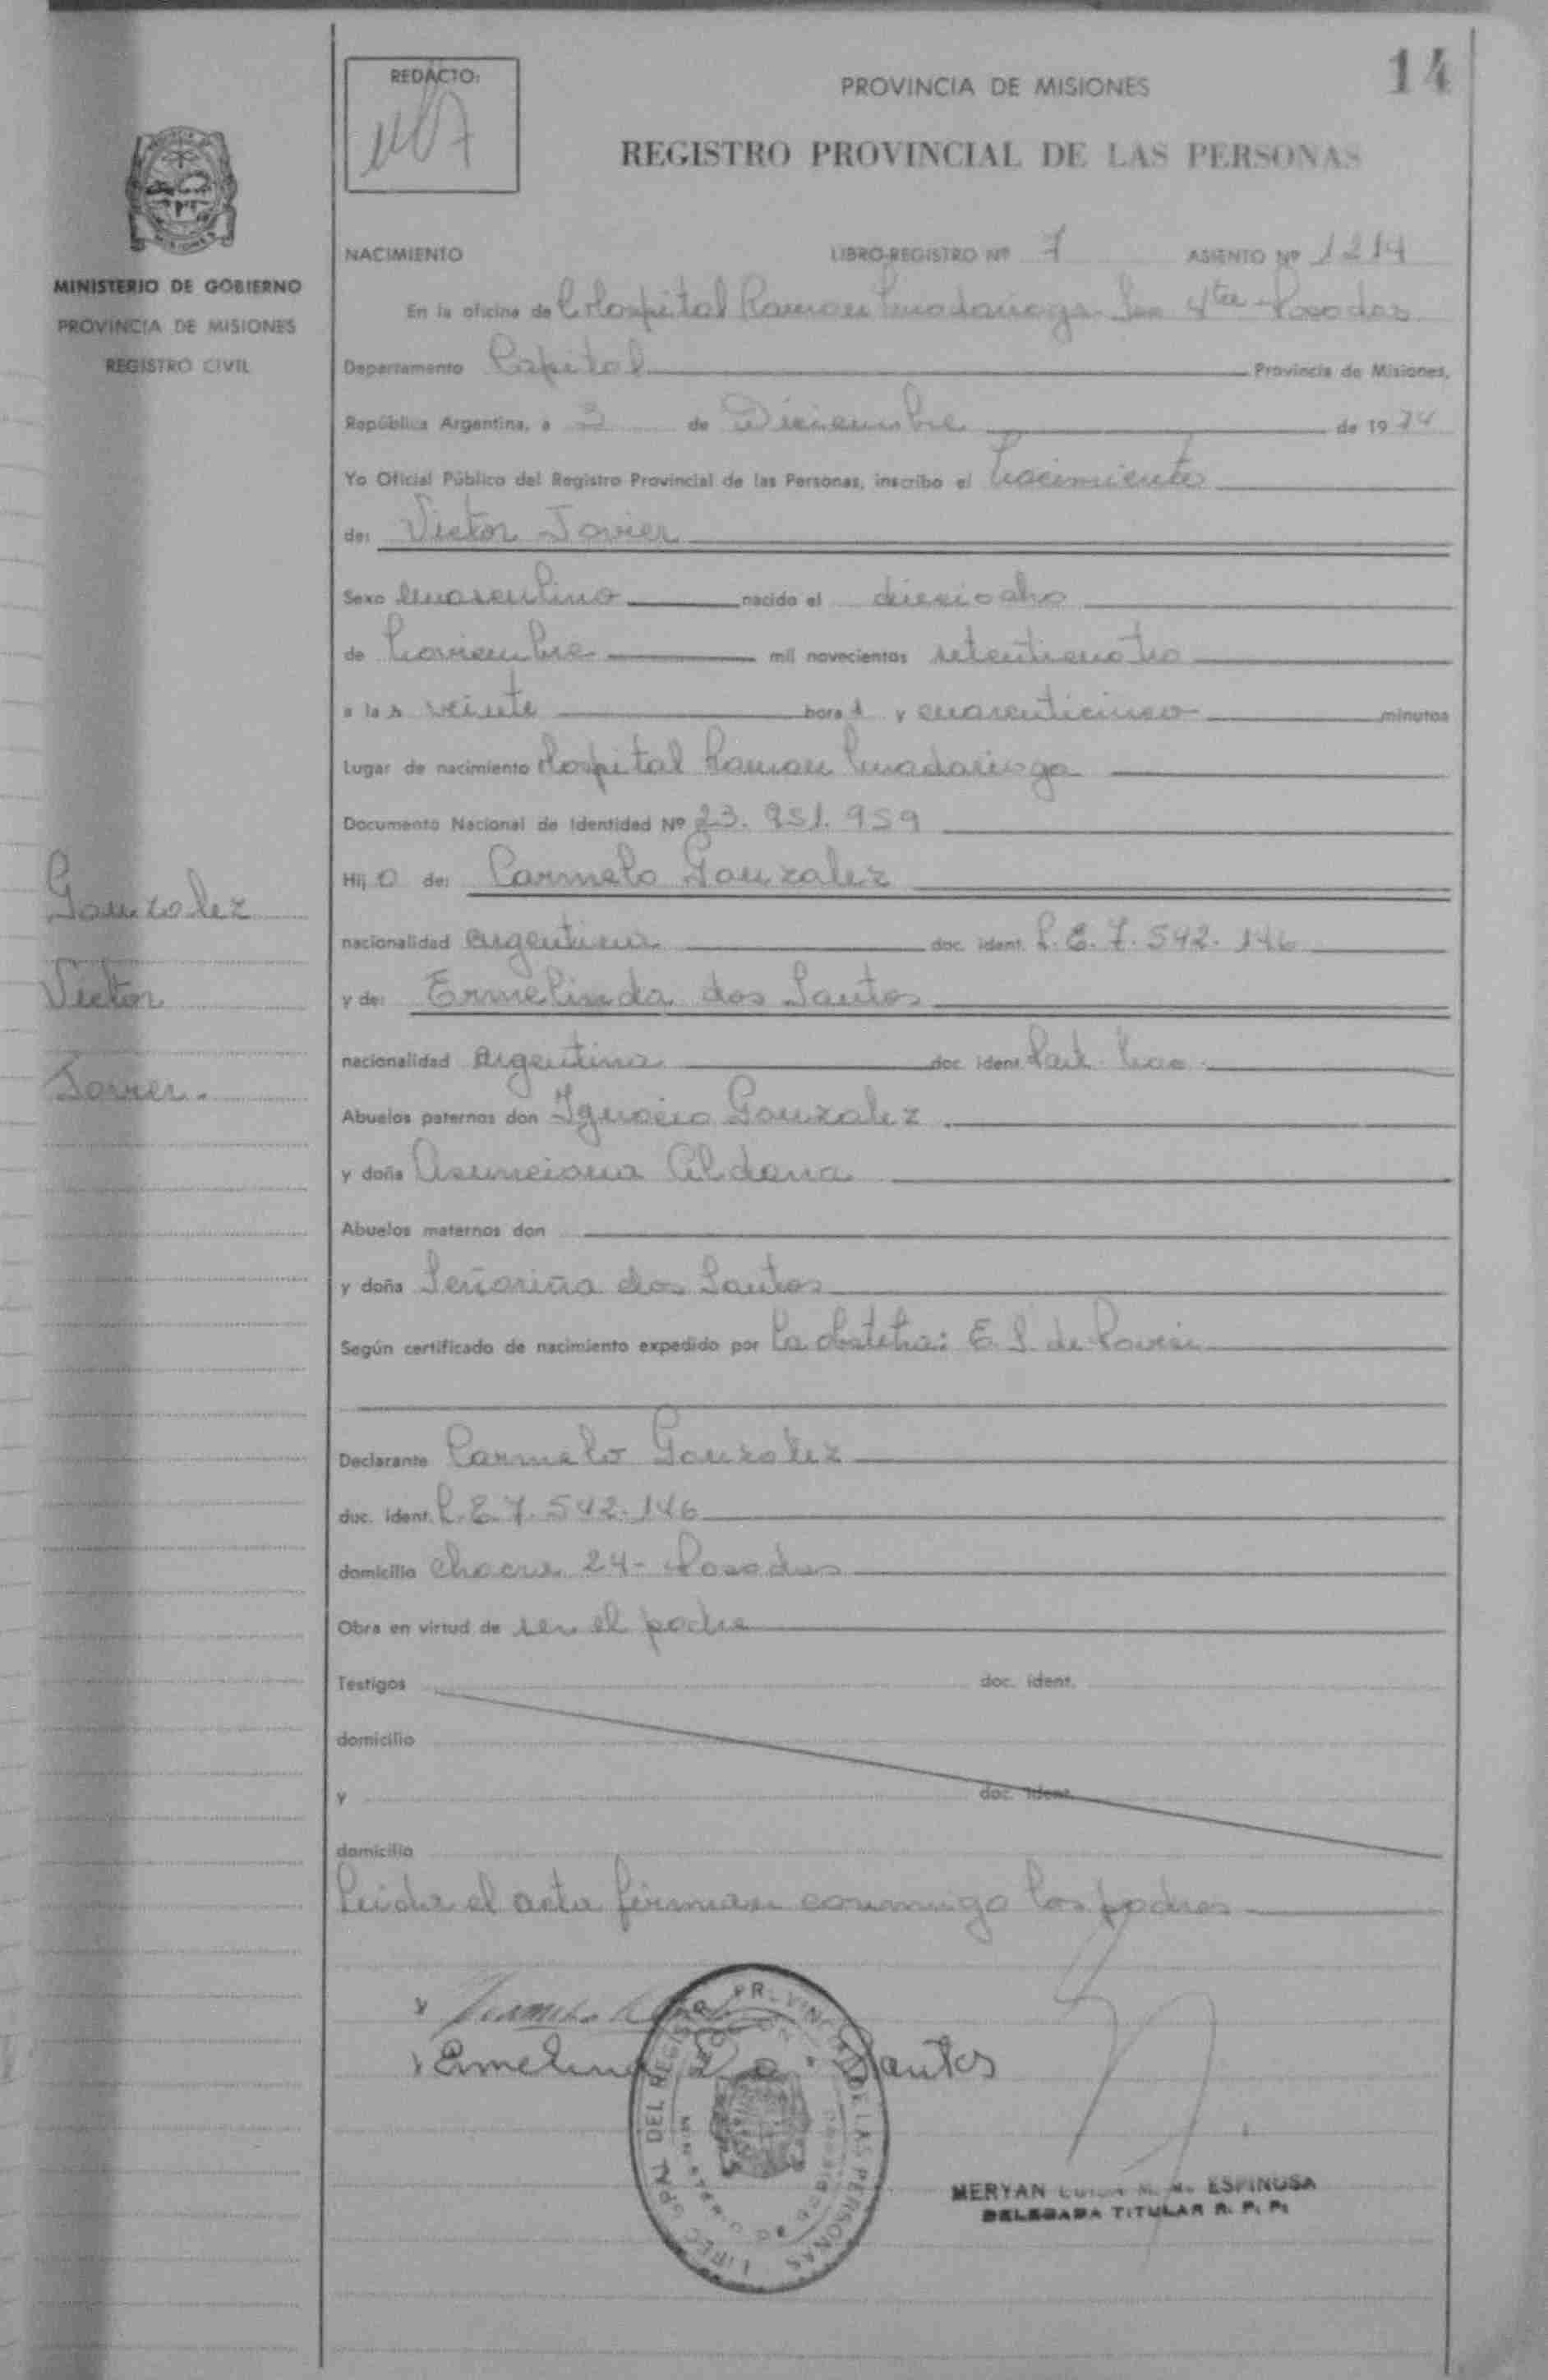 14
REDACTO:
PROVINCIA DE MISIONES
REGISTRO PROVINCIAL DE LAS PERSONAS
MINISTERIO DE GOBIERNO
PROVINCIA DE MISIONES
REGISTRO CIVIL
NACIMIENTO LIBRO-REGISTRO Nº 7 ASIENTO Nº 1214
En la oficina de Hospital Ramon Madariaga Sec 4ta Posadas
Departamento Capital Provincia de Misiones,
República Argentina, a 3 de Diciembre de 1974
Yo Oficial Público del Registro Provincial de las Personas, inscribo el Nacimiento
de: Victor Javier
Sexo masculino nacido el dieciocho
de Noviembre mil novecientos setenticuatro
a las veinte horas y cuarenticinco minutos
Lugar de nacimiento Hospital Ramon Madariaga
Documento Nacional de Identidad Nº 23.951.959
Hijo de: Carmelo Gonzalez
nacionalidad argentina doc. ident. L.E. 7.542.146
y de: Ermelinda dos Santos
nacionalidad argentina doc. ident.
Abuelos paternos don Ignacio Gonzalez
y doña Asunciona Aldana
Abuelos maternos don
y doña Señoriña dos Santos
Según certificado de nacimiento expedido por La obstetra: E. S. de
Declarante Carmelo Gonzalez
doc. ident. L.E. 7.542.146
domicilio chacra 24- Posadas
Obra en virtud de ser el padre
Testigos doc. ident.
domicilio
y doc. ident.
domicilio
Leida el acta firman conmigo los padres
Gonzalez
Victor
Javier.
Santos
MERYAN ESPINOSA
DELEGADA TITULAR R. P. P.